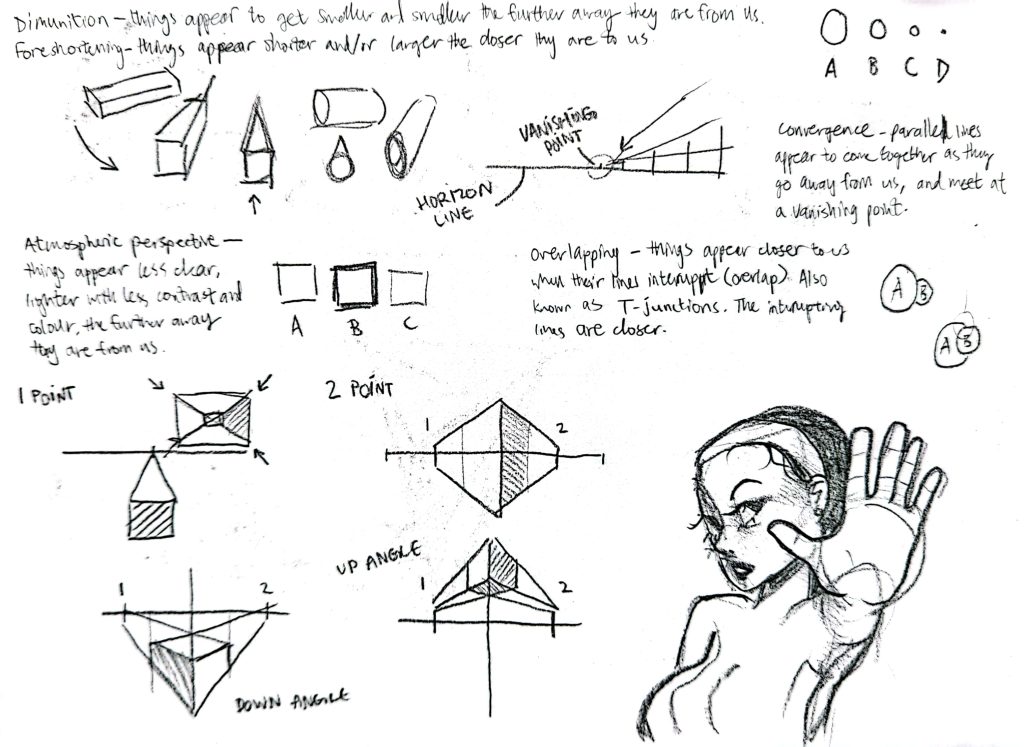 Dimunition - things appear to get smaller and smaller the further away they are from us.
Foreshortening - things appear shorter and/or larger the closer they are to us.
A B C D
VANISHING
POINT
HORIZON
LINE
Convergence - parallel lines
appear to come together as they
go away from us, and meet at
a vanishing point.
Atmospheric perspective -
things appear less clear,
lighter with less contrast and
colour, the further away
they are from us.
A B C
Overlapping - things appear closer to us
when their lines interruppt (overlap). Also
known as T-junctions. The interrupting
lines are closer.
A B
A B
1 POINT
2 POINT
1 2
UP ANGLE
1 2
1 2
DOWN ANGLE